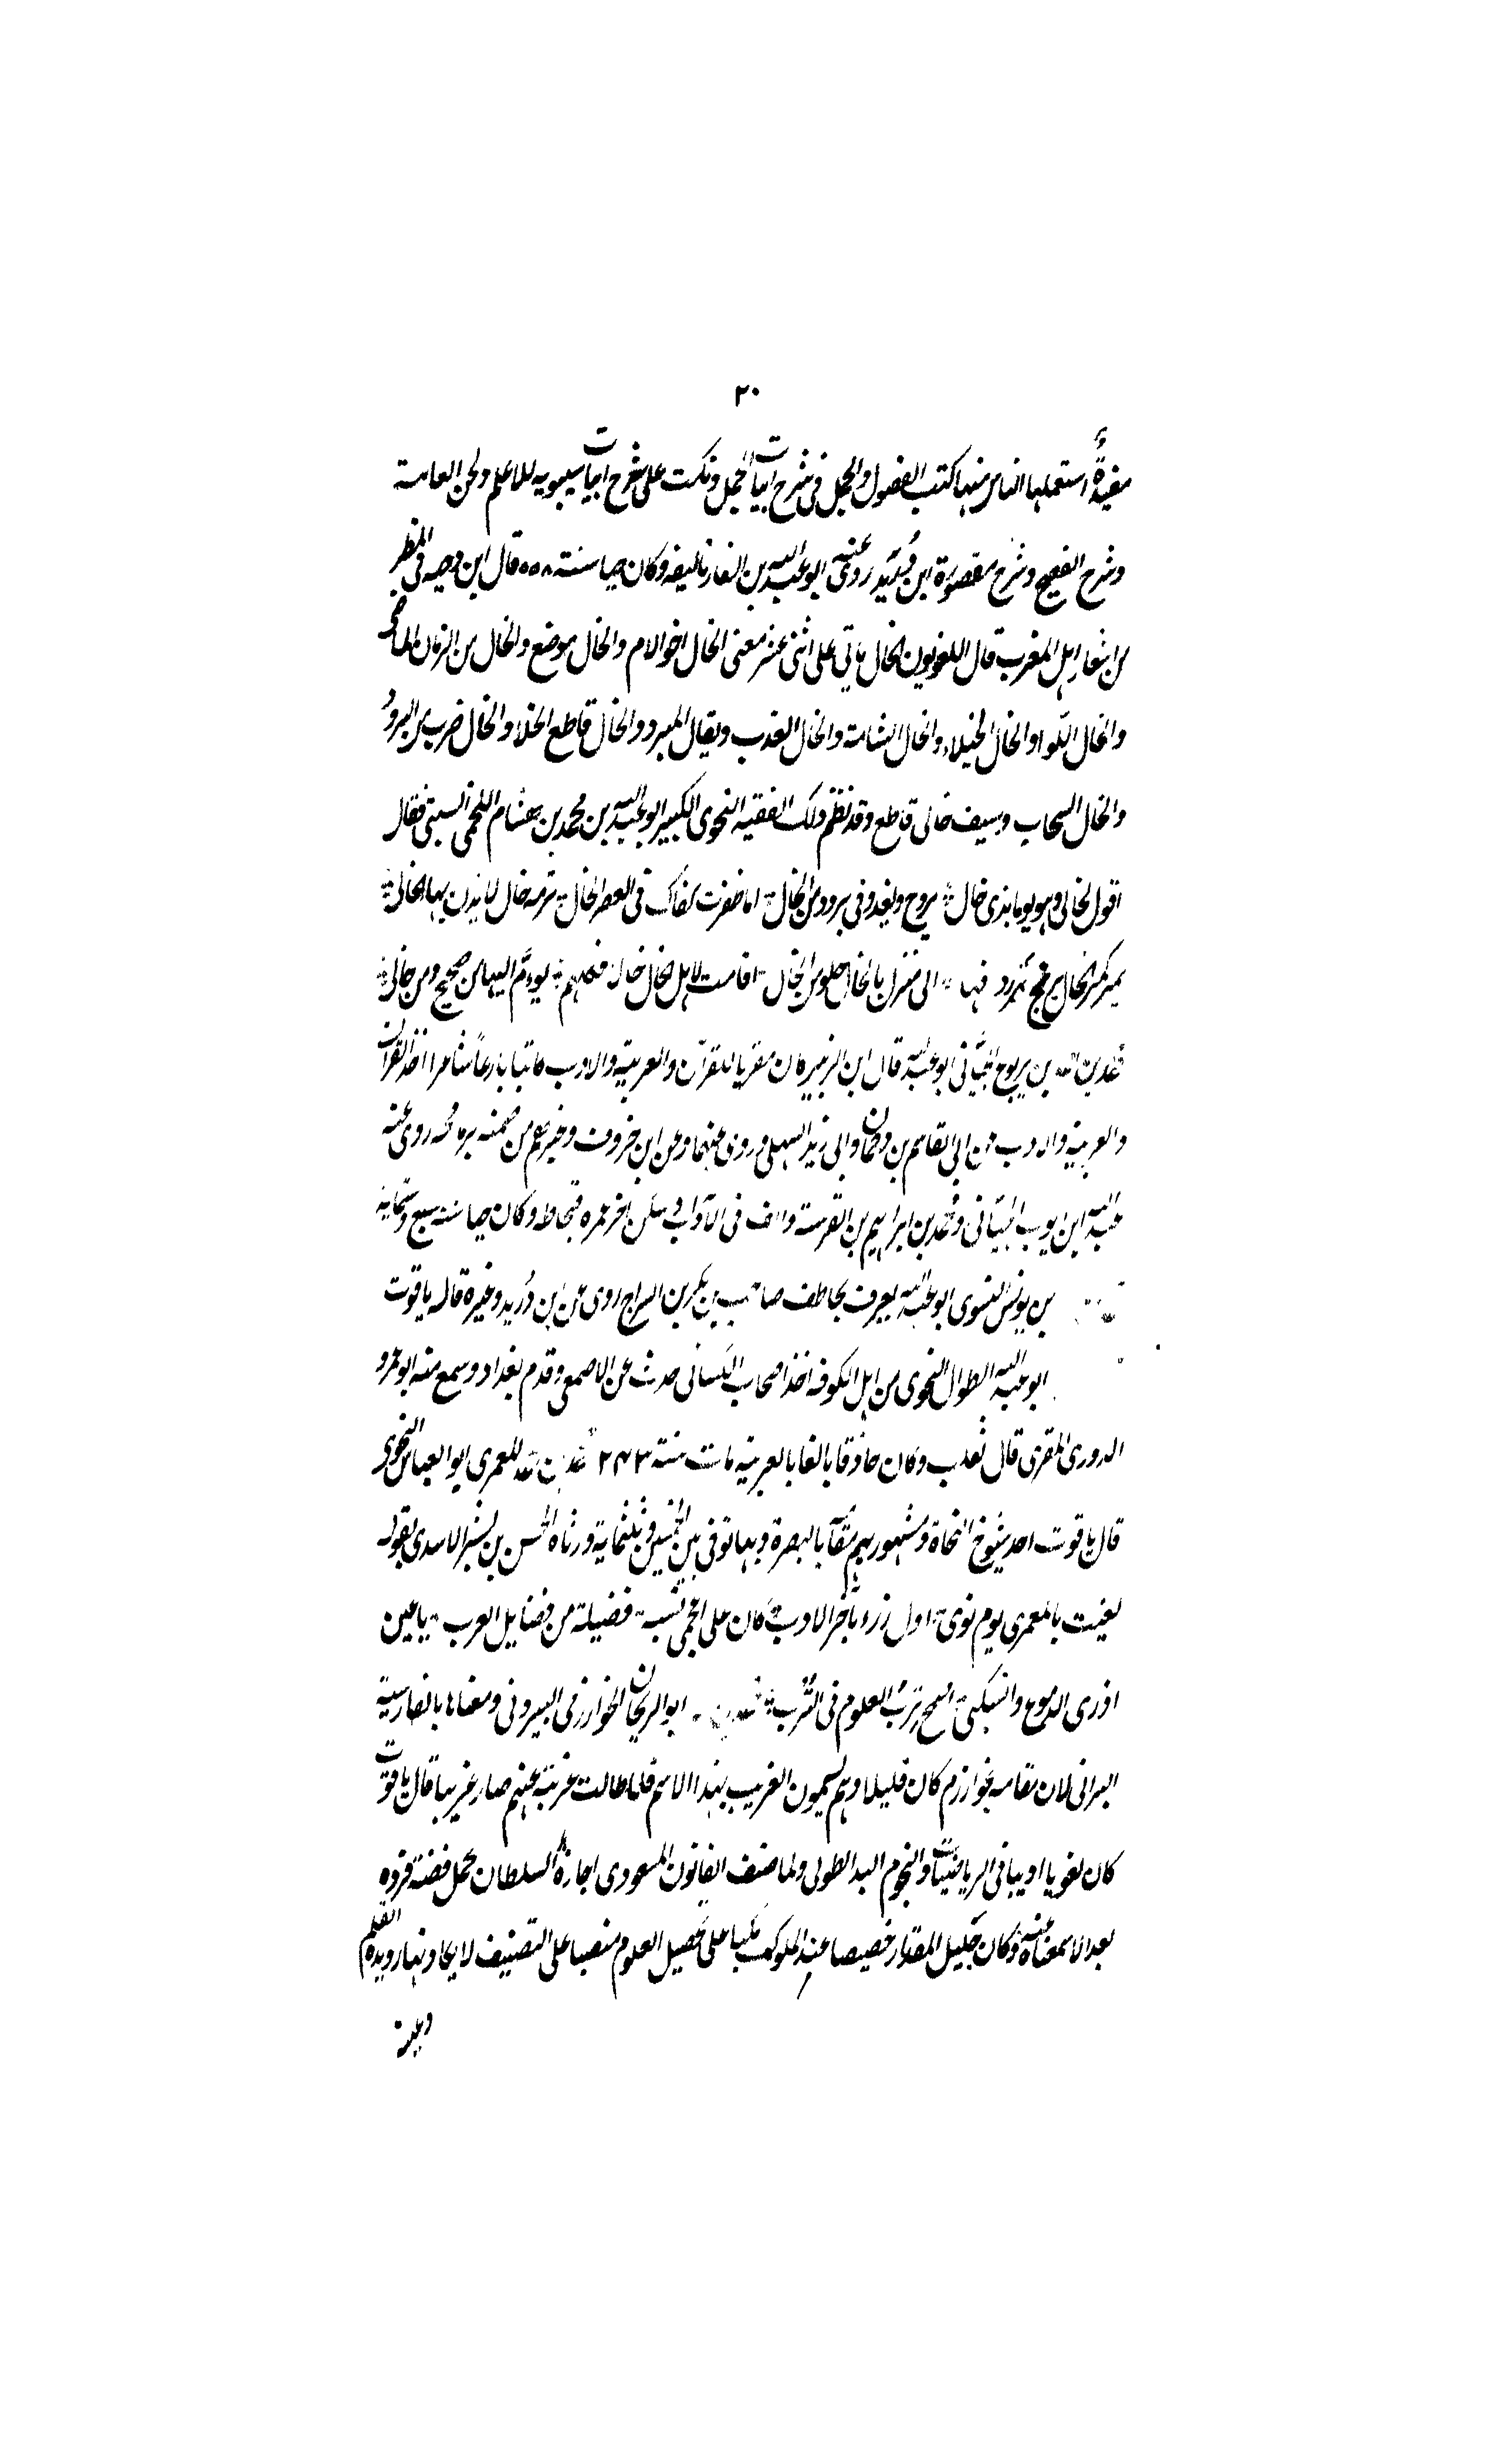 ٣٠
مفيدةٌ استعملها الناس منها كتب الفصول والجمل فى شرح ابيات الجمل ونكت على شرح ابيات سيبويه للاعلم ولحن العامة
وشرح الفصيح وشرح مقصورة ابن دُرَيد روى عنه ابو عبد الله بن الغار تاليفه وكان حيا سنة ٥٥٨ قال ابن دحيه فى المطرب
من اشعار اهل المغرب قال اللغويون الخال ياتى على اثنى عشر معنى الخال اخو الام والخال موضع والخال من الزمان الماضى
والخال اللوا والخال الخيلاء والخال الشامة والخال العزب ويقال المبرد والخال قاطع الخلا والخال ضرب من البرود
والخال السحاب وسيف خالى قاطع وقد نظم ذلك الفقيه النحوى الكبير ابو عبد الله بن محمد بن هشام اللخمى السبتى فقال
اقول لخالى وهو يوما بذى خال يروح ويغدو فى برود من الخال اما ظفرت كفاك فى العصر الخال بربة خال لا يزن بها الخالى
تمر كمر الخال يرتج ردفها الى منزل بالخال خلو من الخال اقامت لاهل الخال خالا فكلهم يؤم اليها من صحيح ومن خالى
محمد بن احمد بن يربوع الجيّانى ابو عبد الله قال ابن الزبير كان مقريا للقرآن والعربية والادب كاتبا بارعاً شاعرا اخذ القرآن
والعربية والادب عن ابى القاسم بن دحمان وابى زيد السهيلى وروى عنهما وعن ابن خروف وغيرهم من ضمنه برنامجه روى عنه
عبد الله ابن ايوب الجيّانى ومحمد بن ابراهيم بن القرشية والف فى الآداب سكن اخر عمره قيجاطه وكان حيا سنة سبع وستماية
بن يونس الفسوى ابو عبد الله يعرف بخاطف صاحب بن بكر بن السراج روى عن ابن دُريد وغيره قاله ياقوت
ابو عبد الله الطوال النحوى من اهل الكوفة احد اصحاب الكسائى حدث عن الاصمعى وقدم بغداد وسمع منه ابو عمرو
الدورى المقرى قال ثعلب وكان حاذقا بالقا بالعربية مات سنة ٢٤٣ محمد بن احمد للعمرى ابو العباس النحوى
قال ياقوت احد شيوخ النحاة ومشهوريهم نشأ بالبصرة وبها توفى بين الخمسين وثلثماية ورثاه الحسن بن بشر الاسدى بقوله
لقيت بالمعمرى يوم نوى اول رزء باخر الادب كان على اعجمى نسبه فضيلة من فضايل العرب يا عين
اذرى الدموع وانسكبى اصبح ترب العلوم فى التُرب محمد بن ابو الريحان الخوارزمى البيرونى ومعناها بالفارسية
البرانى لان مقامه بخوارزم كان قليلا وهم يسمون الغريب بهذا الاسم فلما طالت غربته عنهم صار غريبا قال ياقوت
كان لغويا اديبا فى الرياضيات والنجوم اليد الطولى ولما صنف القانون المسعودى اجازه السلطان بحمل فضة فرده
بعد الاستغناء عنه وكان جليل المقدار خصيصا عند الملوك مكبا على تحصيل العلوم منصبا على التصنيف لا يكاد يفارق يده القلم
وعينه